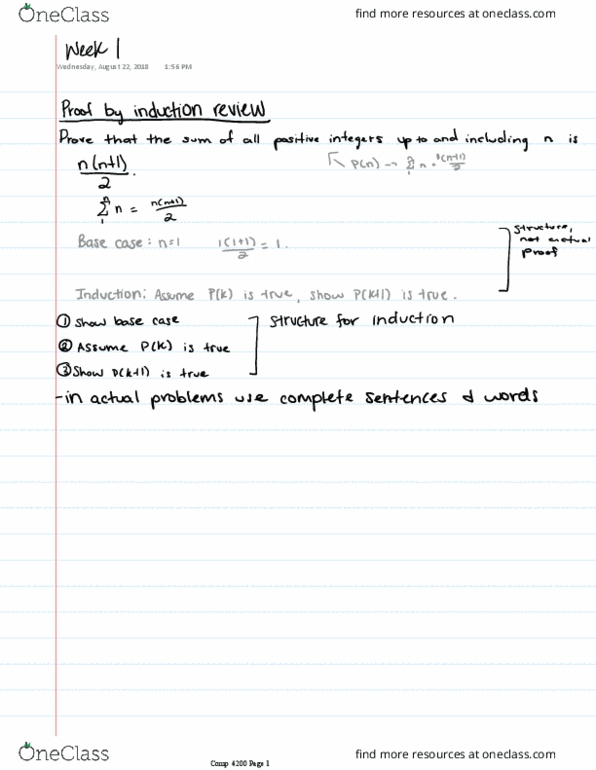 OneClass find more resources at oneclass.com
Week 1
Wednesday, August 22, 2018 1:56 PM
Proof by induction review
Prove that the sum of all positive integers up to and including n is
n(n+1)/2.
P(n) → Σ n = n(n+1)/2
Σ n = n(n+1)/2
Base case: n=1 1(1+1)/2 = 1.
structure, not actual proof
Induction: Assume P(k) is true, show P(k+1) is true.
① Show base case
structure for induction
② Assume P(k) is true
③ Show P(k+1) is true
-in actual problems use complete sentences & words
OneClass find more resources at oneclass.com
Comp 4200 Page 1